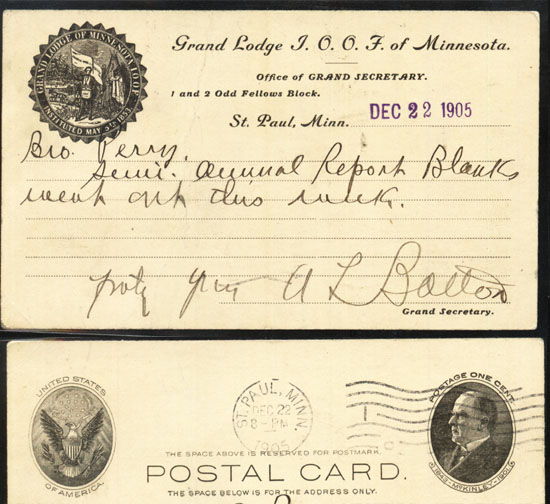 GRAND LODGE OF MINNESOTA I.O.O.F.
INSTITUTED MAY 5th 1853
Grand Lodge I. O. O. F. of Minnesota.
Office of GRAND SECRETARY.
1 and 2 Odd Fellows Block.
St. Paul, Minn.
DEC 22 1905
Bro. Perry,
Semi. Annual Report Blanks
went out this week.
Fratly Yours A L Bolton
Grand Secretary.
UNITED STATES
OF AMERICA.
ST. PAUL, MINN.
DEC 22
8-PM
1905
POSTAGE ONE CENT
1843-McKINLEY-1901
THE SPACE ABOVE IS RESERVED FOR POSTMARK.
POSTAL CARD.
THE SPACE BELOW IS FOR THE ADDRESS ONLY.